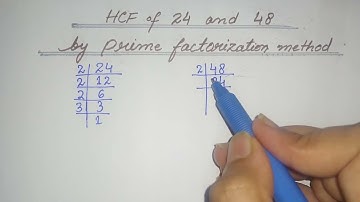 HCF of 24 and 48
by prime factorization method
2 | 24
2 | 12
2 | 6
3 | 3
1
2 | 48
24